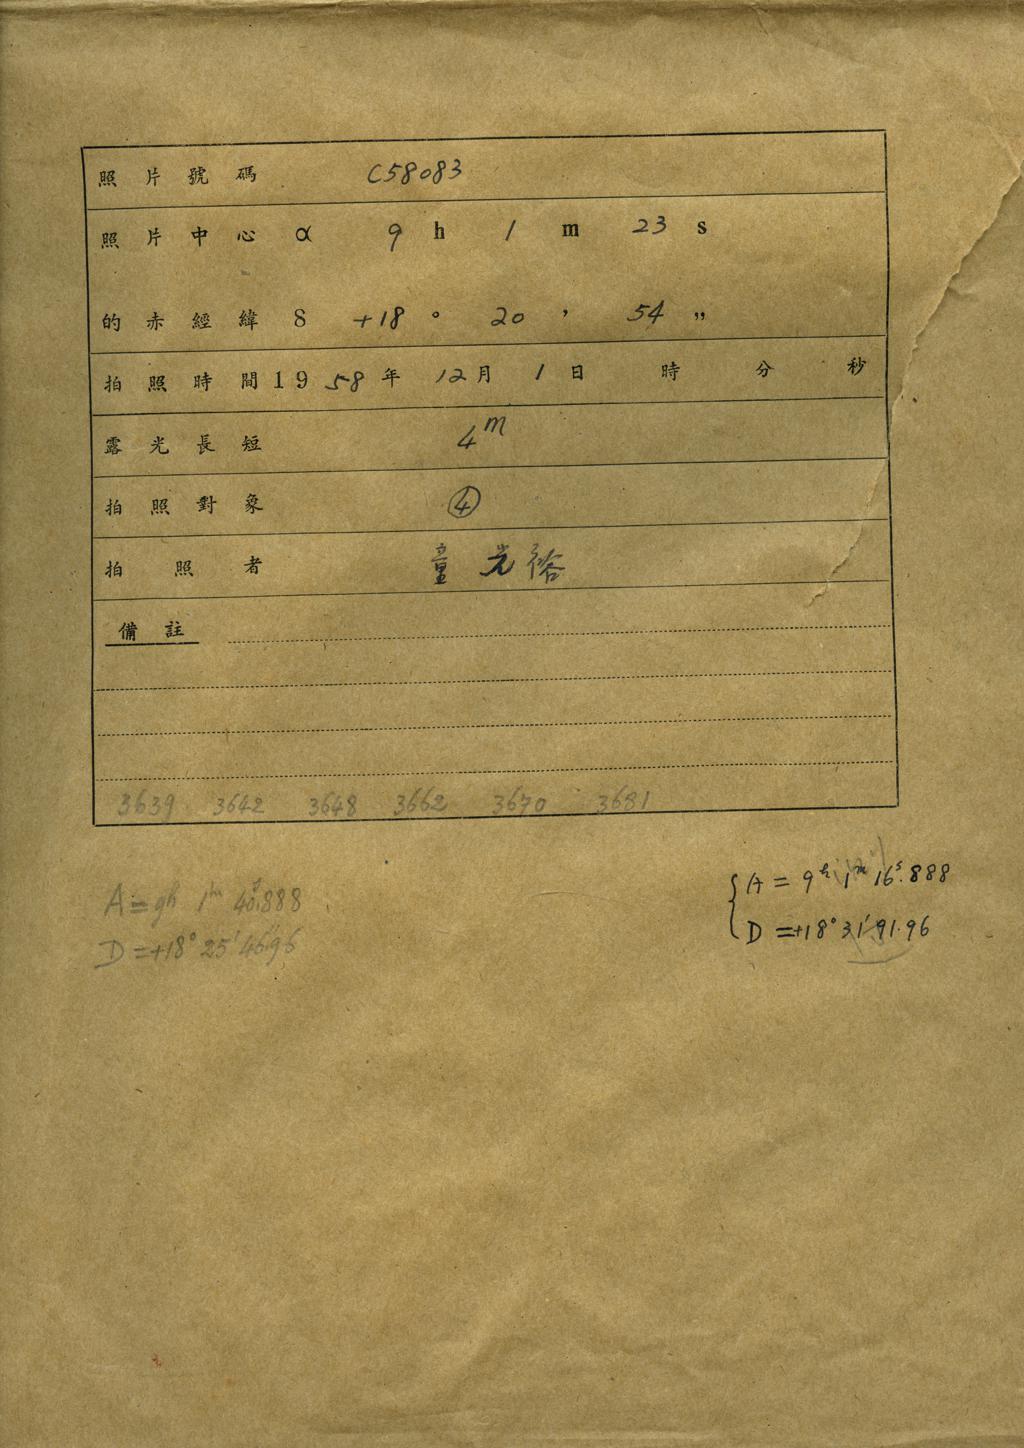 照片號碼 C58083
照片中心 α 9 h 1 m 23 s
的赤經緯 δ +18 ° 20 ’ 54 ”
拍照時間 1958年 12月 1日 時 分 秒
露光長短 4m
拍照對象 ④
拍照者 童光裕
備註
3639 3642 3648 3662 3670 3681
A = 9h 1m 16s.888
D = +18° 31' 91.96
A = 9h 1m 40s.888
D = +18° 25' 46".96